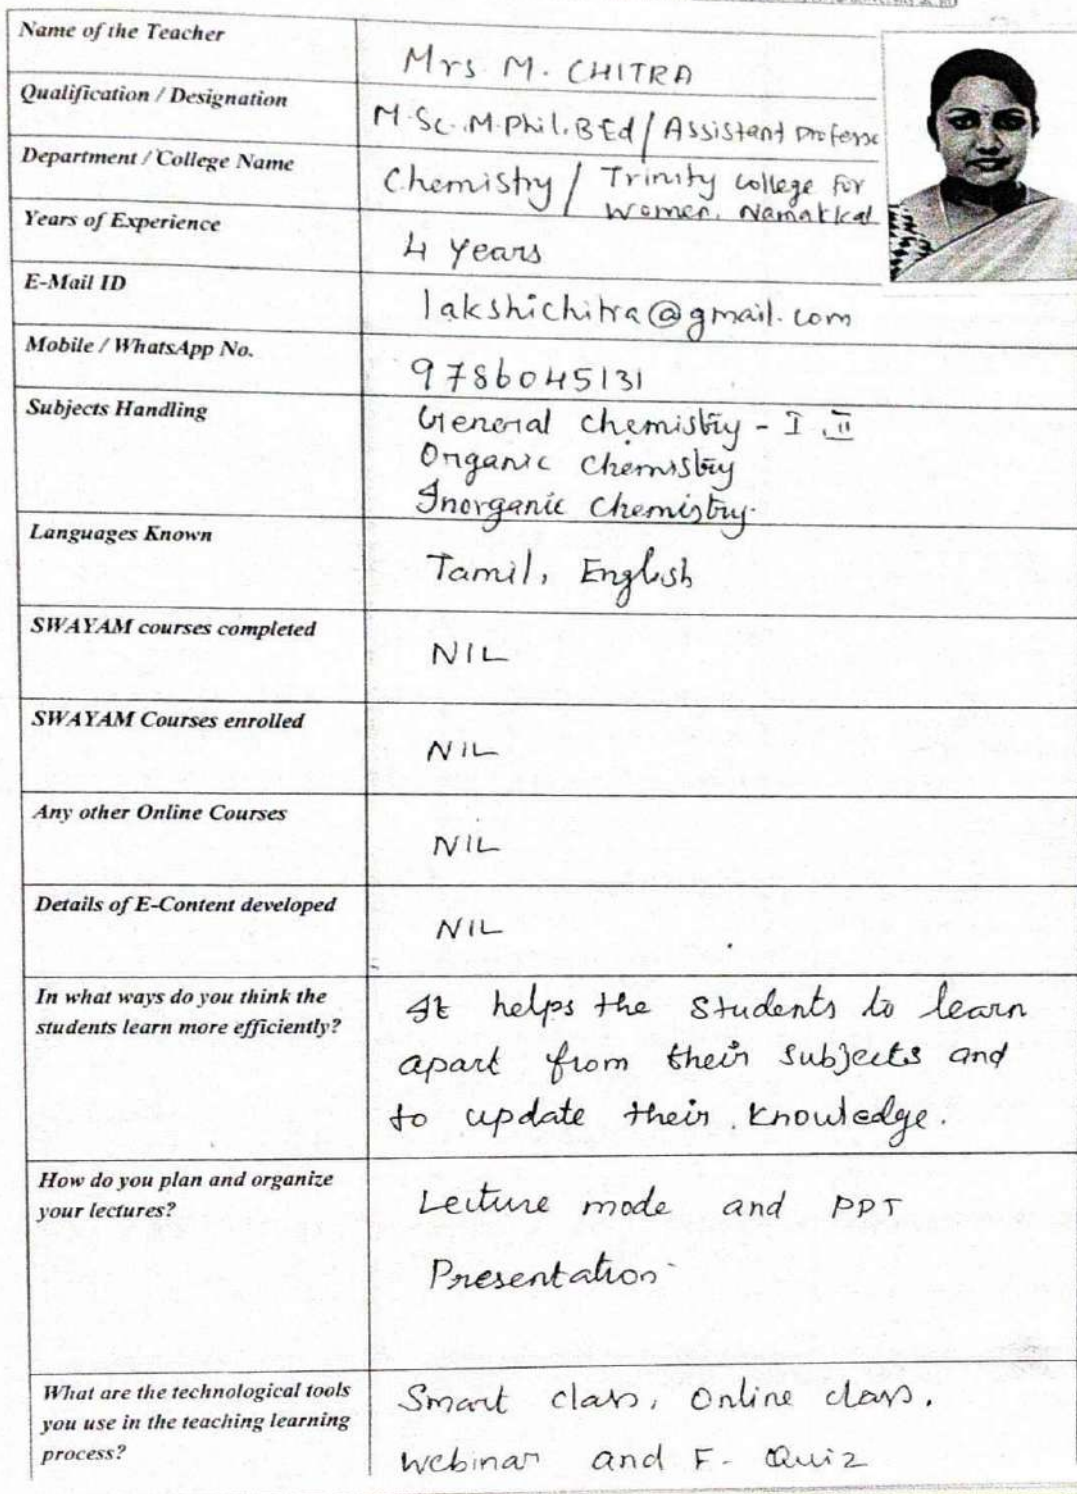 Name of the Teacher
Mrs. M. CHITRA
Qualification / Designation
M.Sc., M.Phil., B.Ed / Assistant Professo
Department / College Name
Chemistry / Trinity College for
Women, Namakkal
Years of Experience
4 Years
E-Mail ID
lakshichitra@gmail.com
Mobile / WhatsApp No.
9786045131
Subjects Handling
General Chemistry - I, II
Organic Chemistry
Inorganic Chemistry.
Languages Known
Tamil, English
SWAYAM courses completed
NIL
SWAYAM Courses enrolled
NIL
Any other Online Courses
NIL
Details of E-Content developed
NIL
In what ways do you think the
students learn more efficiently?
It helps the Students to learn
apart from their subjects and
to update their knowledge.
How do you plan and organize
your lectures?
Lecture mode and PPT
Presentation
What are the technological tools
you use in the teaching learning
process?
Smart class, Online class,
Webinar and E- Quiz